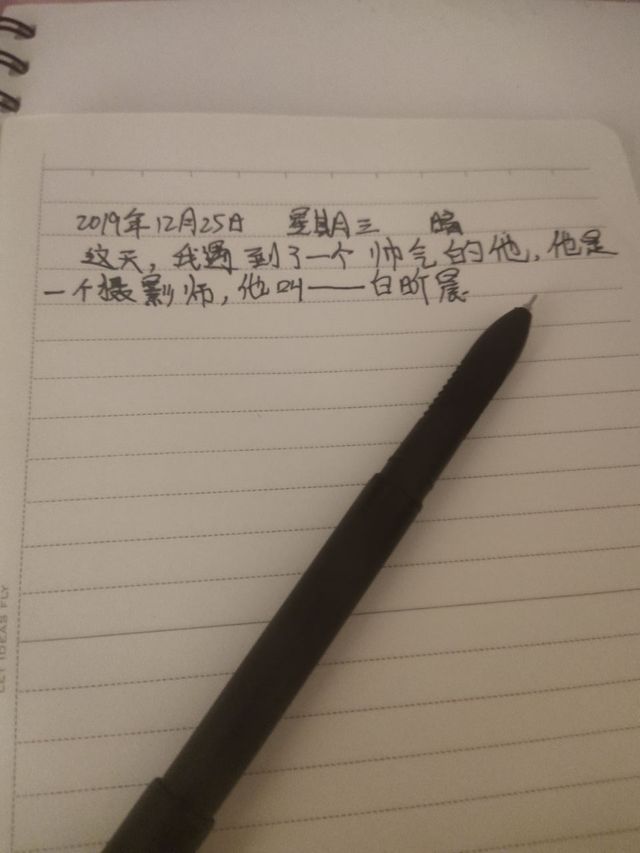 2019年12月25日 星期三 晴
这天，我遇到了一个帅气的他，他是
一个摄影师，他叫——白昕晨
LET IDEAS FLY